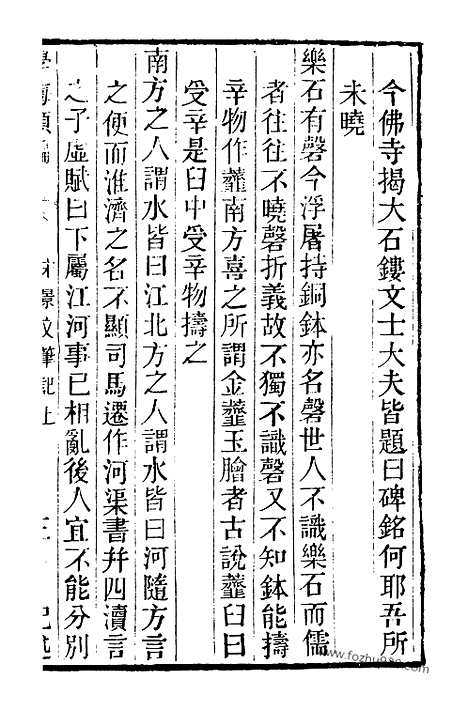 今佛寺揭大石鏤文士大夫皆題曰碑銘何耶吾所
未曉
樂石有磬今浮屠持銅鉢亦名磬世人不識樂石而儒
者往往不曉磬折義故不獨不識磬又不知鉢能擣
辛物作虀南方喜之所謂金虀玉膾者古說虀臼曰
受辛是臼中受辛物擣之
南方之人謂水皆曰江北方之人謂水皆曰河隨方言
之便而淮濟之名不顯司馬遷作河渠書幷四瀆言
之子虛賦曰下屬江河事已相亂後人宜不能分別
宋景文筆記上
www.fozhu920.com